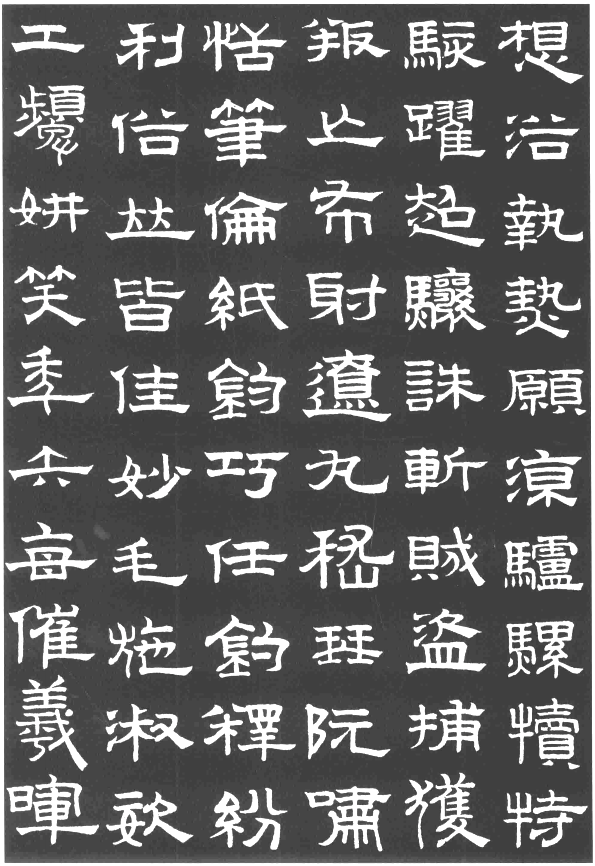 想浴執熱願涼驢騾犢特
駭躍超驤誅斬賊盜捕獲
叛亡布射遼丸嵇琴阮嘯
恬筆倫紙鈞巧任釣釋紛
利俗竝皆佳妙毛施淑姿
工顰妍笑年矢每催羲暉